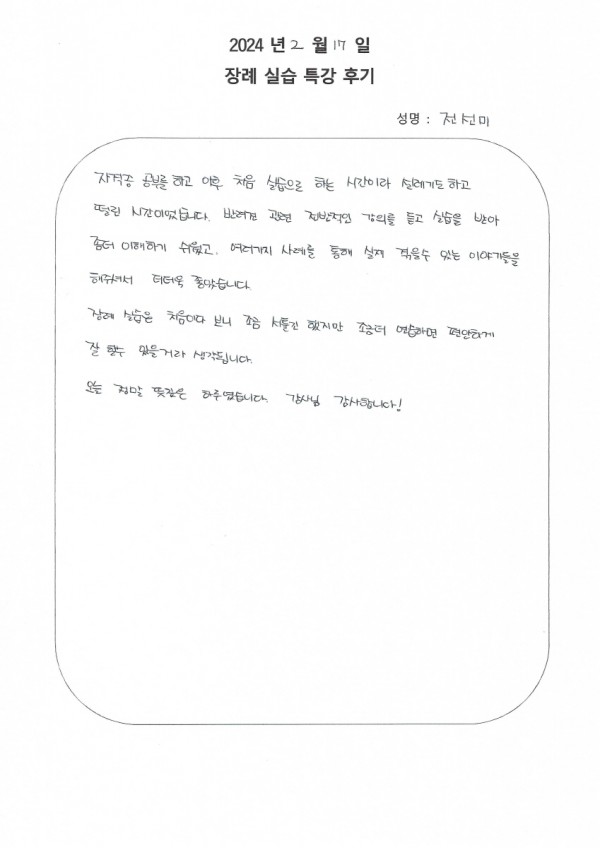 2024 년 2 월 17 일
장례 실습 특강 후기
성명 : 전선미
자격증 공부를 하고 이후 처음 실습으로 하는 시간이라 설레기도 하고
떨린 시간이었습니다. 반려견 관련 전반적인 강의를 듣고 실습을 받아
좀더 이해하기 쉬웠고, 여러가지 사례를 통해 실제 겪을수 있는 이야기들을
해주셔서 더더욱 좋았습니다.
장례 실습은 처음이다 보니 조금 서툴긴 했지만 조금더 연습하면 편안하게
잘 할수 있을거라 생각됩니다.
오늘 정말 뜻깊은 하루였습니다. 강사님 감사합니다!